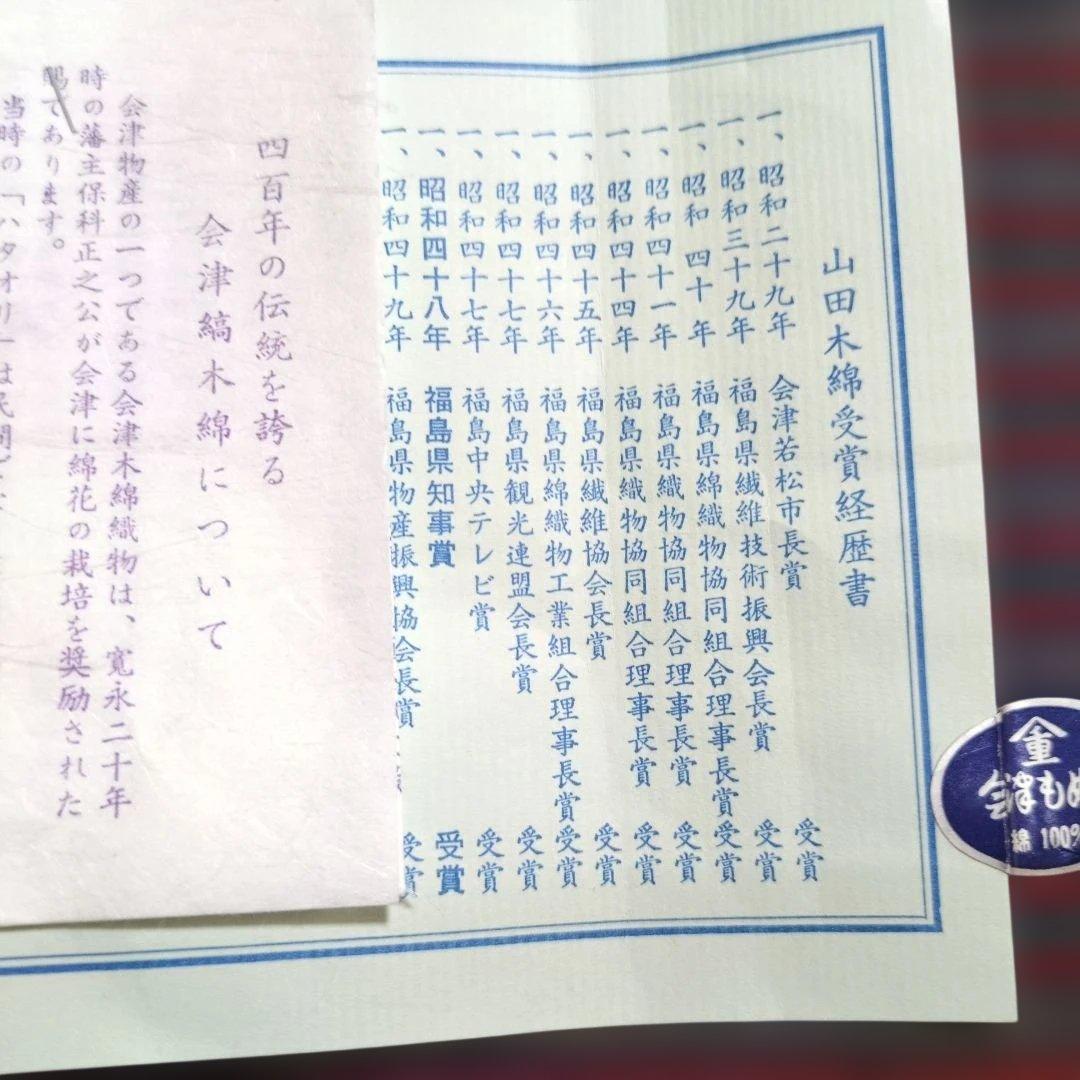 山田木綿受賞経歴書
一、昭和二十九年 会津若松市長賞 受賞
一、昭和三十九年 福島県繊維技術振興会長賞 受賞
一、昭和 四十 年 福島県綿織物協同組合理事長賞 受賞
一、昭和四十一年 福島県織物協同組合理事長賞 受賞
一、昭和四十四年 福島県織物協同組合理事長賞 受賞
一、昭和四十五年 福島県繊維協会長賞 受賞
一、昭和四十六年 福島県綿織物工業組合理事長賞 受賞
一、昭和四十七年 福島県観光連盟会長賞 受賞
一、昭和四十七年 福島中央テレビ賞 受賞
一、昭和四十八年 福島県知事賞 受賞
一、昭和四十九年 福島県物産振興協会長賞 受賞
四百年の伝統を誇る
会津縞木綿について
会津物産の一つである会津木綿織物は、寛永二十年
時の藩主保科正之公が会津に綿花の栽培を奨励された
賜であります。
当時の「ハタオリ」は民間で
重
会津もめ
綿 100%